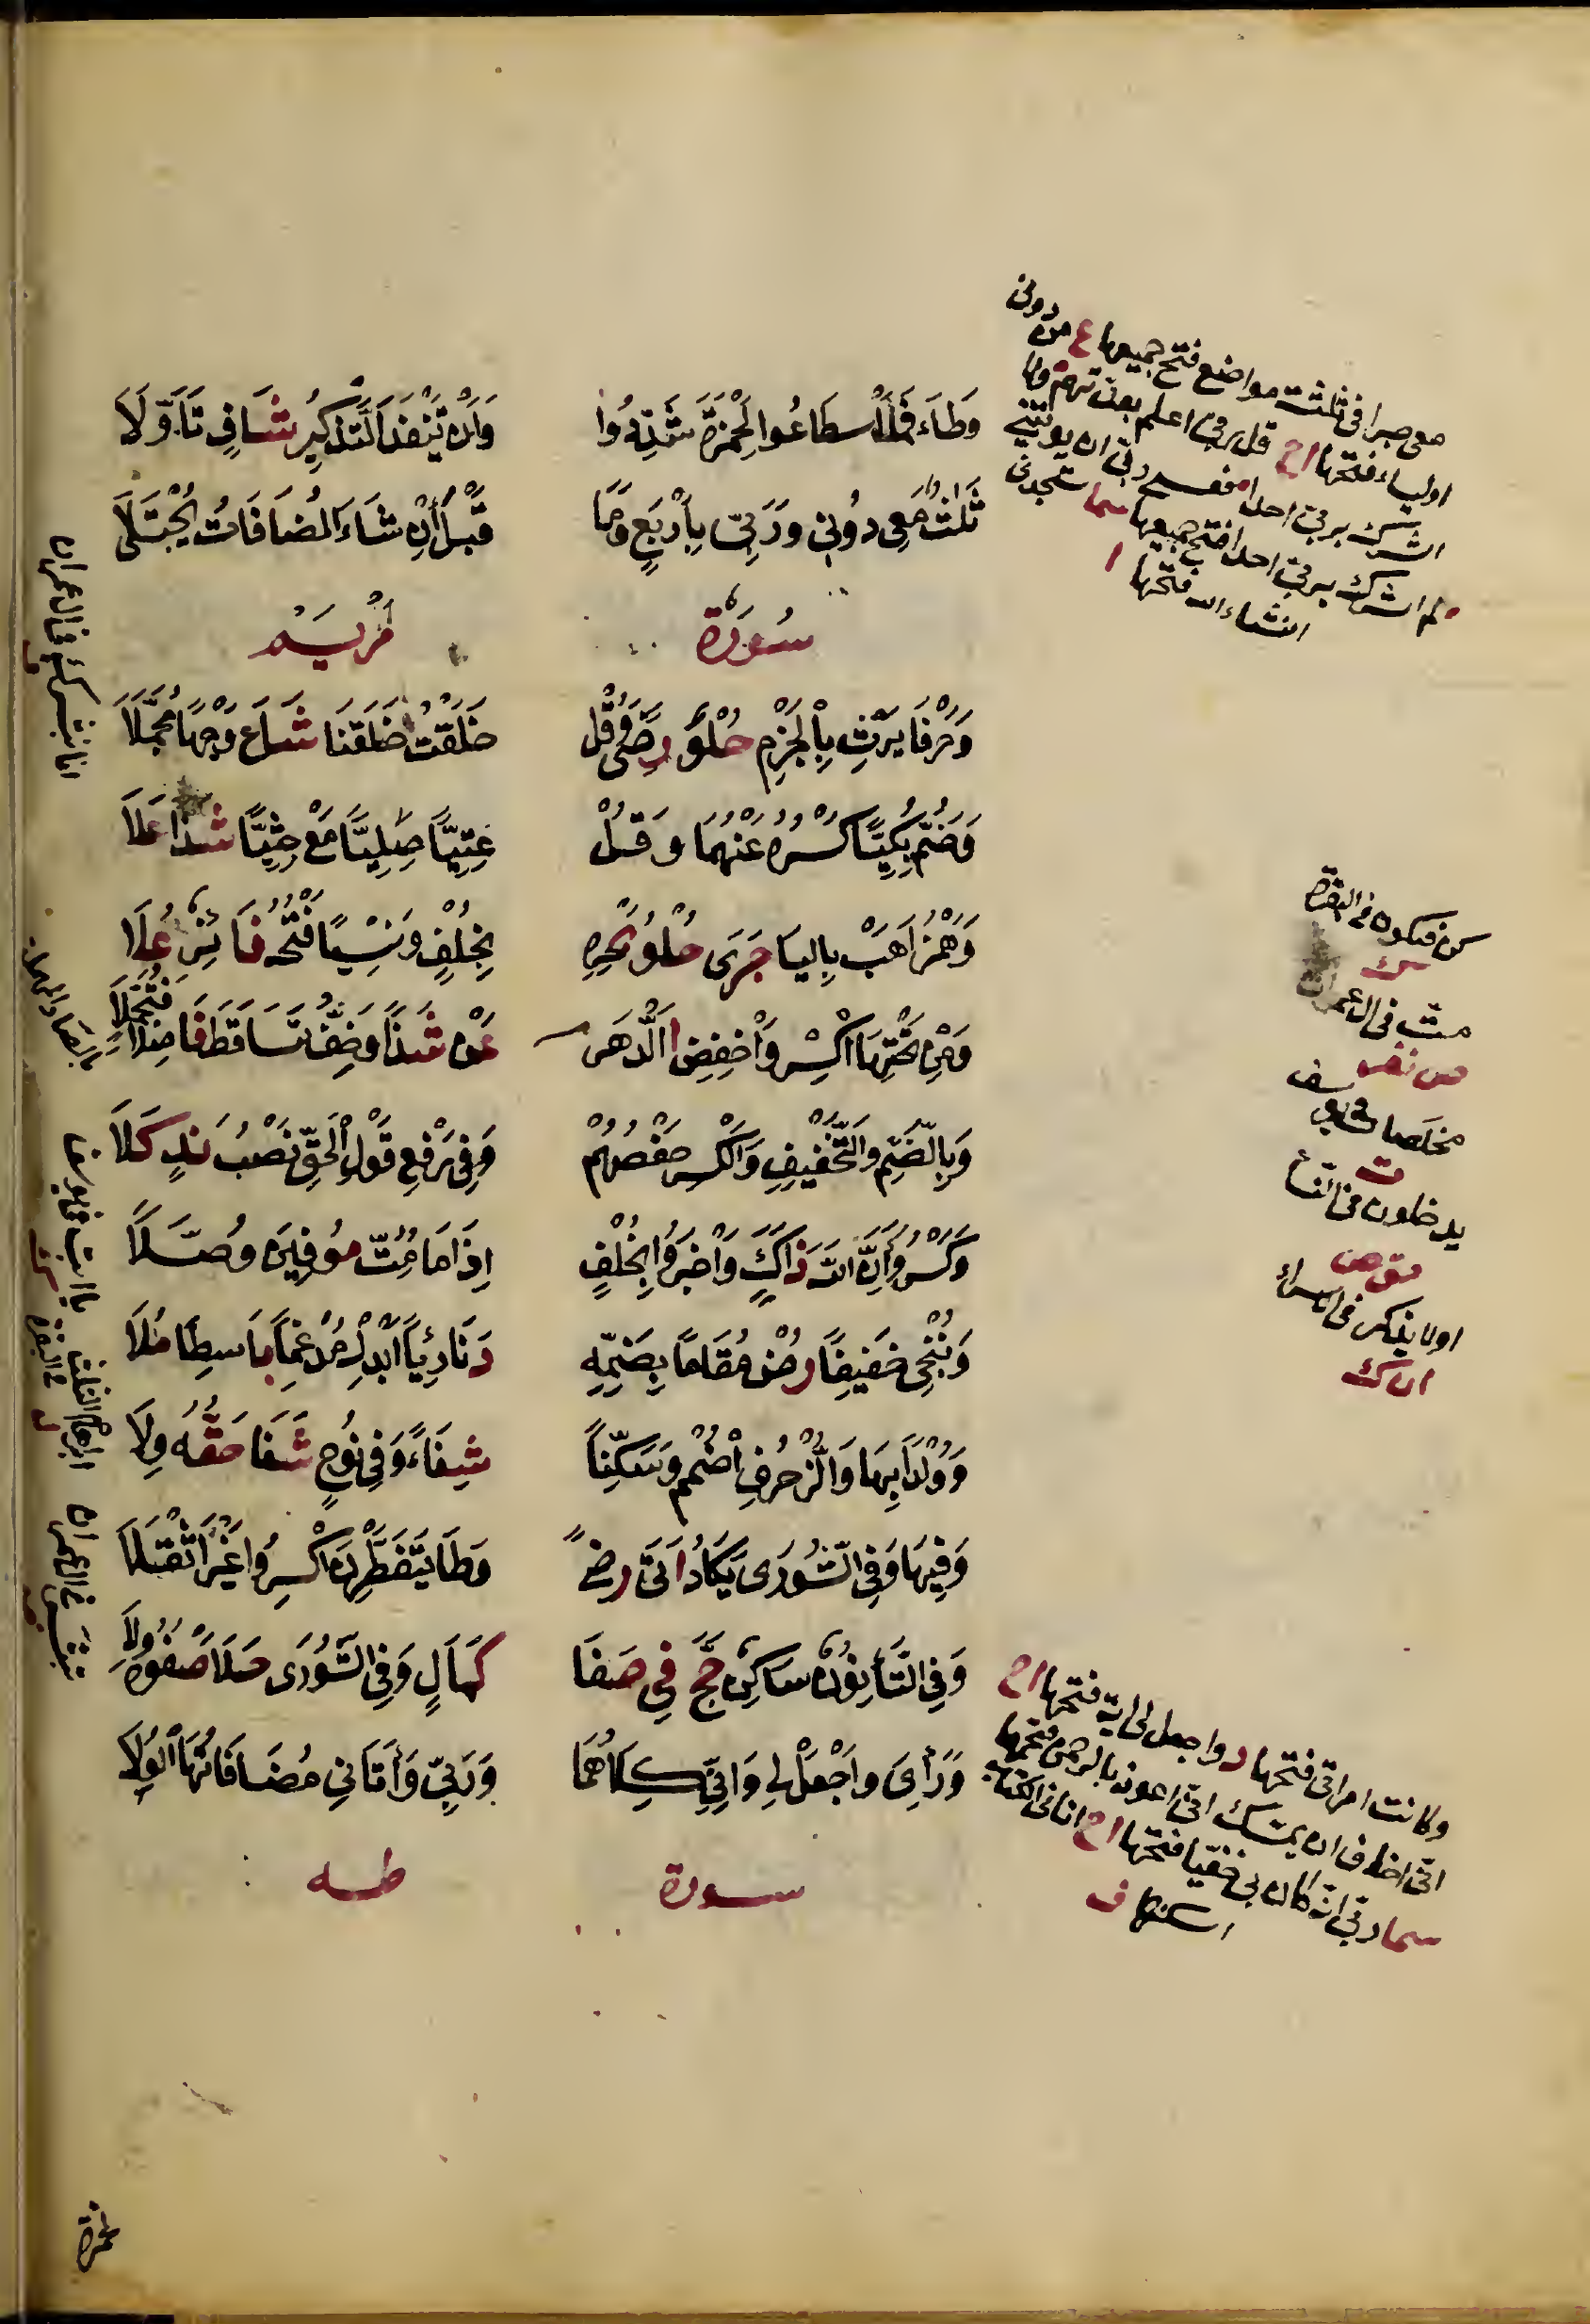 وَطَاءَ فَمَا اسْطَاعُوا لِحَمْزَةَ شَدِّدُوا وَاَنْ يَّنْفَدَ التَّذْكِيرُ شَافٍ تَأَوَّلَا
ثَلٰثٌ مَعِى دُونِى وَرَبِّى بِاَرْبَعٍ وَمَا قَبْلَ اِنْ شَاءَ الْمُضَافَاتُ تُجْتَلَى
سُورَة مَرْيَم
وَحَرْفَا يَرِثْ بِالْجَزْمِ حُلْوُ رِضًى وَقُلْ خَلَقْتُ خَلَقْنَا شَاعَ وَجْهًا مُجَمَّلَا
وَضَمُّ بُكِيًّا كَسْرُهُ عَنْهُمَا وَقُلْ عِتِيًّا صِلِيًّا مَعْ جِثِيًّا شَذًا عَلَا
وَهَمْزُ اَهَبْ بِالْيَا جَرَى حُلْوُ بَحْرِهِ بِخُلْفٍ وَنِسْيًا فَتْحُهُ فَائِزٌ عُلَا
وَمِنْ تَحْتِهَا اكْسِرْ وَاخْفِضِ الدَّهْرَ عَنْ شَذًا وَخَفَّ تَسَاقَطْ فَاصِلًا فَتُحُمِّلَا
وَبِالضَّمِّ وَالتَّخْفِيفِ وَالْكَسْرِ حَفْصُهُمْ وَفِى رَفْعِ قَوْلُ الْحَقِّ نَصْبُ نَدٍ كَلَا
وَكَسْرُ وَاَنَّ اللهَ ذَاكٍ وَاَخْبَرُوا بِخُلْفٍ اِذَا مَا مُتُّ مُوفِينَ وُصَّلَا
وَنُنْجِى خَفِيفًا رُضْ مَقَامًا بِضَمِّهِ دَنَا رِئْيًا اَبْدِلْ مُدْغِمًا بَاسِطًا مُلَا
وَوُلْدًا بِهَا وَالزُّخْرُفِ اضْمُمْ وَسَكِّنًا شِفَاءً وَفِى نُوحٍ شَفَا حَقُّهُ وِلَا
وَفِيهَا وَفِى الشُّورَى يَكَادُ اَتَى رِضًا وَطَا يَتَفَطَّرْنَ اكْسِرُوا غَيْرَ اَثْقَلَا
وَفِى التَّاءِ نُونٌ سَاكِنٌ حَجَّ فِى صَفَا كَمَالٍ وَفِى الشُّورَى حَلَا صَفْوُهُ وِلَا
وَرَاءِىَ وَاجْعَلْ لِى وَاِنِّى كِلَاهُمَا وَرَبِّى وَاٰتَانِى مُضَافَاتُهَا الْوُلَا
سورة طه
معى صبرا فى ثلثت مواضع فتح جميعها ع من دونى
اولياء فتحها اح قل ربى اعلم بعدتهم ولا
اشرك بربى احدا فعسى ربى ان يوتينى
ولم اشرك بربى احدا فتح جميعها سما ستجدنى
انشاء الله فتحها ا
كن فيكون فى البقرة
ك
متّ فى ال عمران
ص نفر
مخلصا فى يوسف
ث
يدخلون فى النساء
حق ص
اولا يذكر فى الاسراء
ان ك
وكانت امراتى فتحها د واجعل لى اية فتحها اح
انى اخاف ان يمسك انى اعوذ بالرحمن فتحها
سما ربى انه كان بى حفيا فتحها اح اتانى الكتاب
اسكنها ف